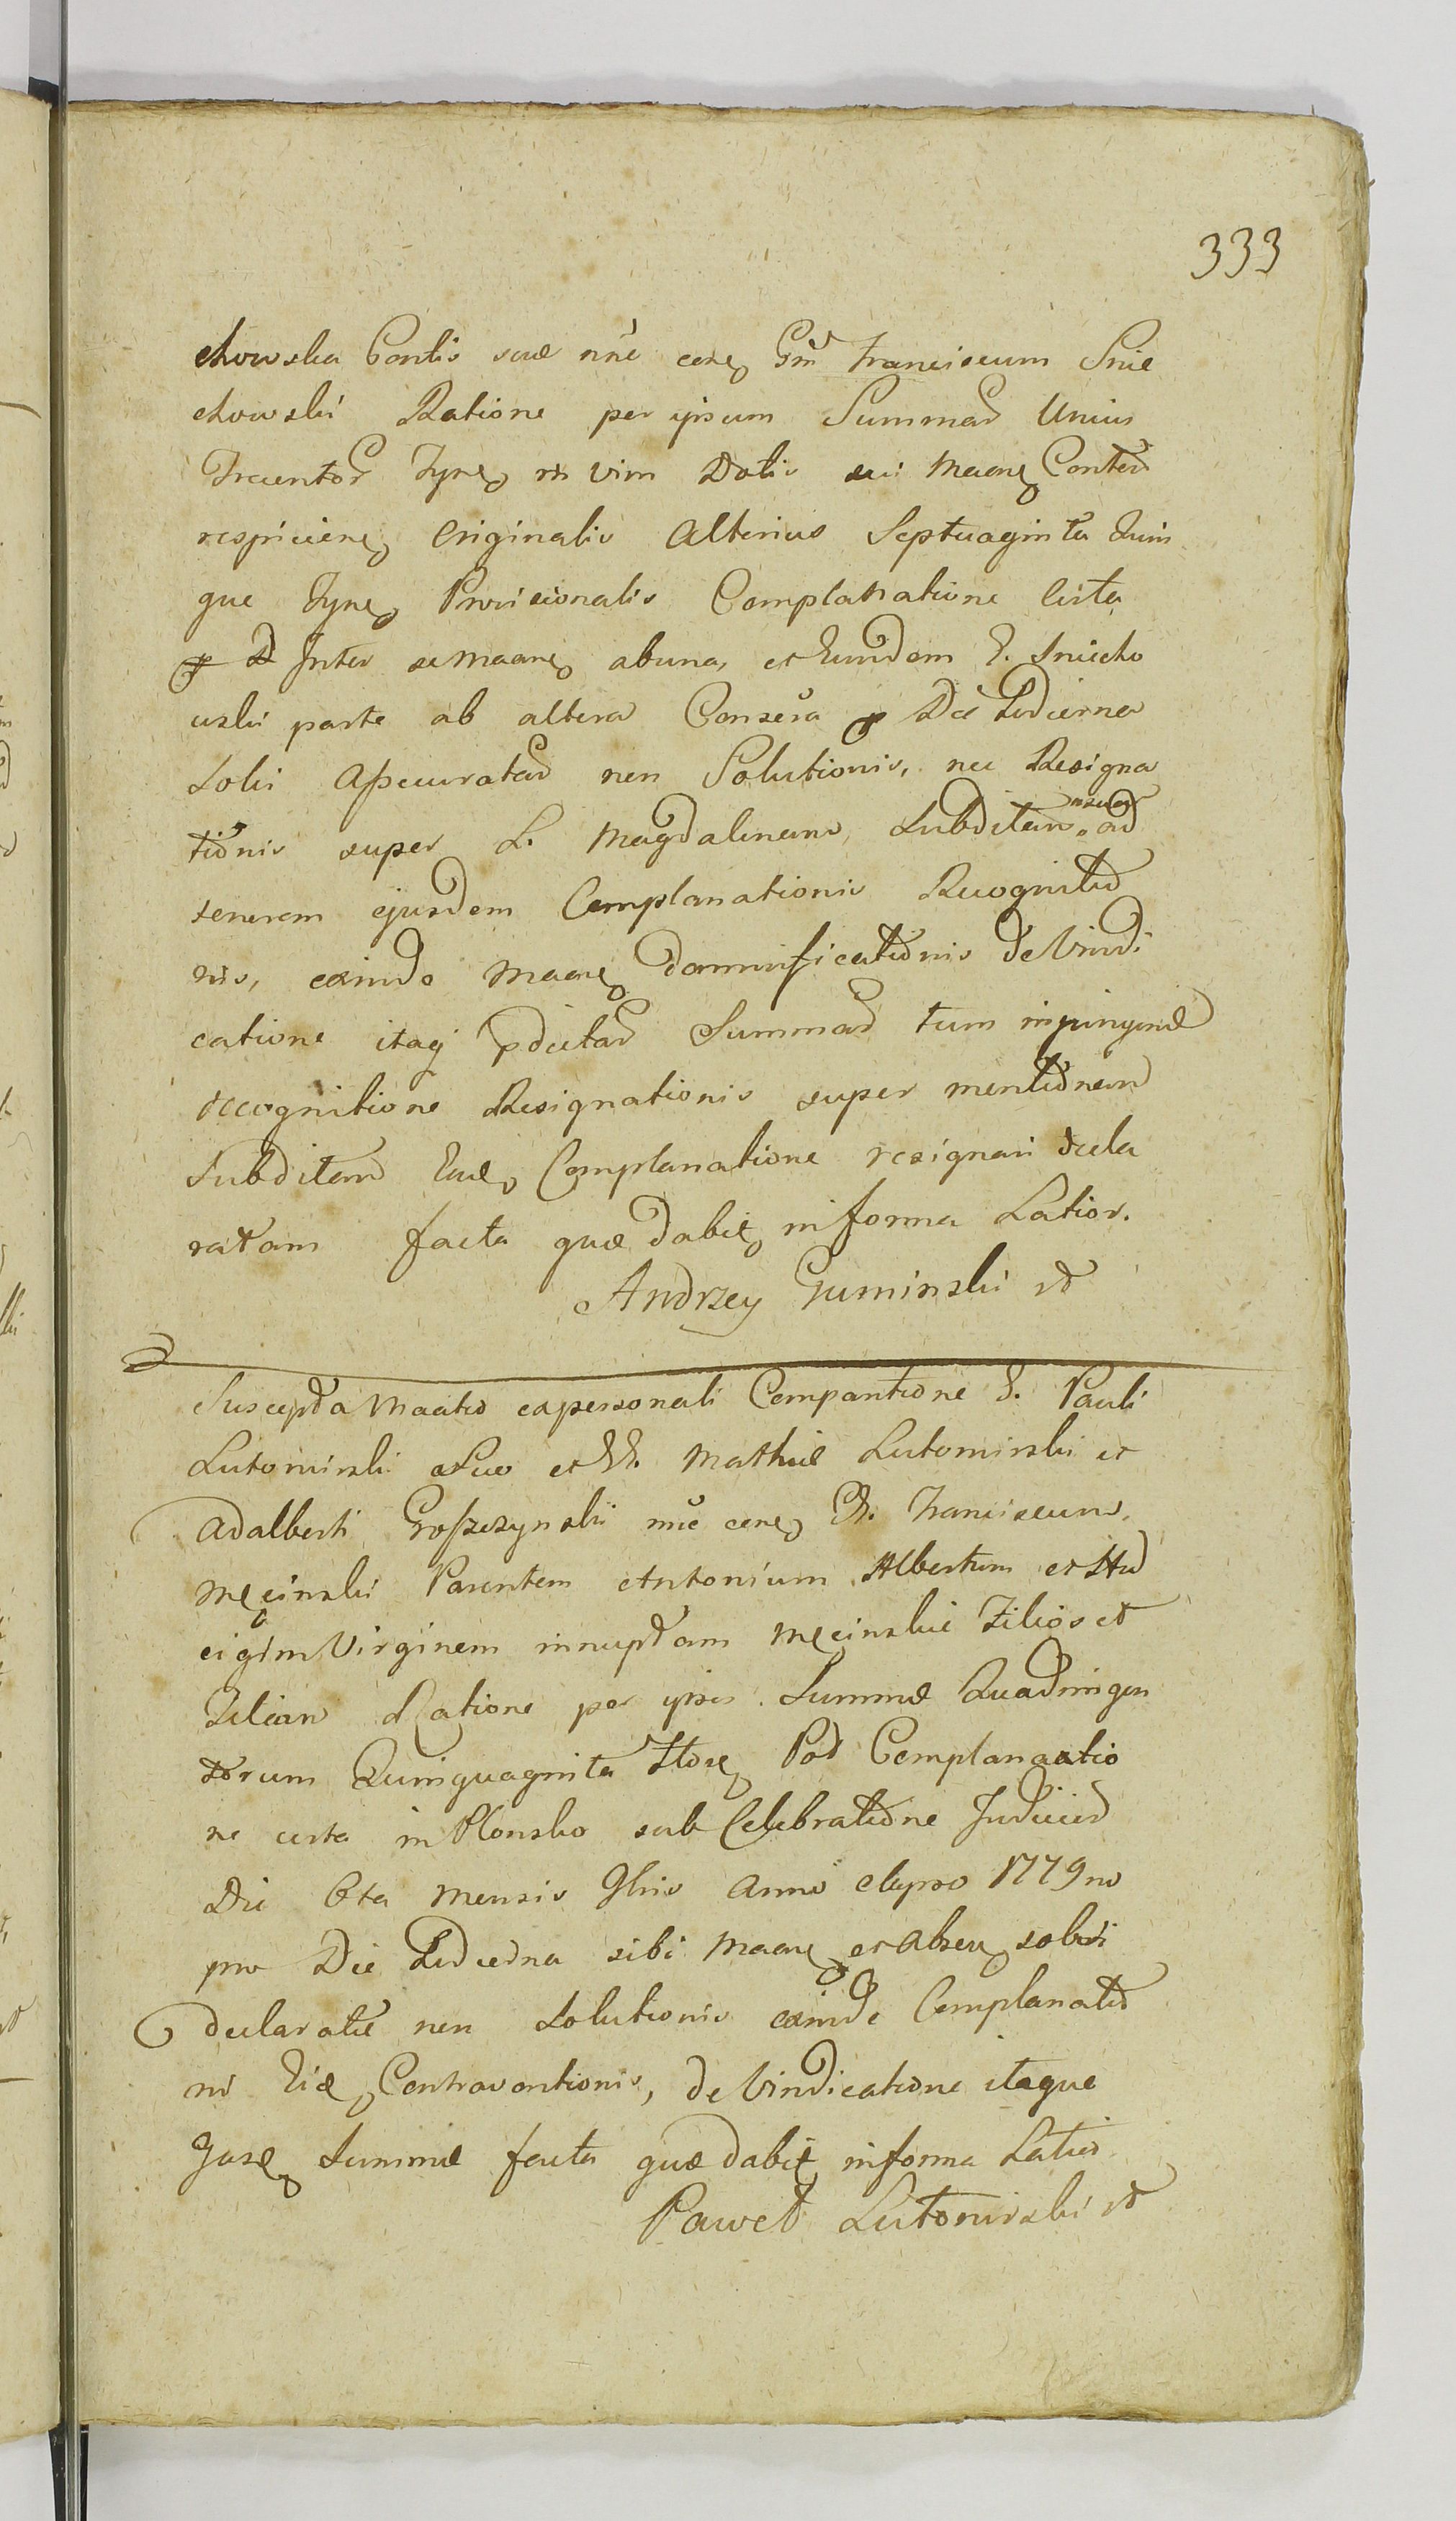 333
chowska Contis suae nne cone Gm Franciscum Snie
chowski Ratione per ipsum Summar Unius
Trecentor Tyne in vim Dotis sui Maane Conten
respiciene Originalis Alterius Septuaginta Quin
que Tyne Provisionalis Complanatione certa
Inter se Maane abuna, et Eundem G. Sniecho
wski parte ab altera Conscra p Die Judicrna
Solvi Apecuratar non Solutionis, nec Resigna
tionis super L. Magdalenam, Subditam ad
tenorem ejusdem Complanationis Recognitio
nis, exinde Maane damnificationis de Vindi
catione itaq pdictar Summar tum inpungend
recognitione Resignationis super mentionem
Subditam Eade Complanatione resignari decla
ratam facta quae dabit in forma Latior.
Andrzey Guminski
Suscepta Maatio expersonali Comparitione G. Pauli
Lutomirski Suo et GG. Mathiae Lutomirski et
Adalberti Groszczynski nne cone G. Franciscum
Męcinski Parentem Antonium Albertum et Hed
eigim Virginem innuptam Męcinskie Filios et
Filiam Ratione per ipsos Summae Quadringen
torum Quinquaginta Flore Pol Complanatio
ne certa in Płonsko sub Celebratione Judicior
Die 6ta Mensis 9bris Anno elapso 1779no
pro Die Judicrna sibi Maane et Absen solvi
declaratae non Solutionis exinde Complanatio
ni Eide Contraventionis, de Vindicatione itaque
Summae facta quae dabit in forma Latior
Paweł Lutomirski